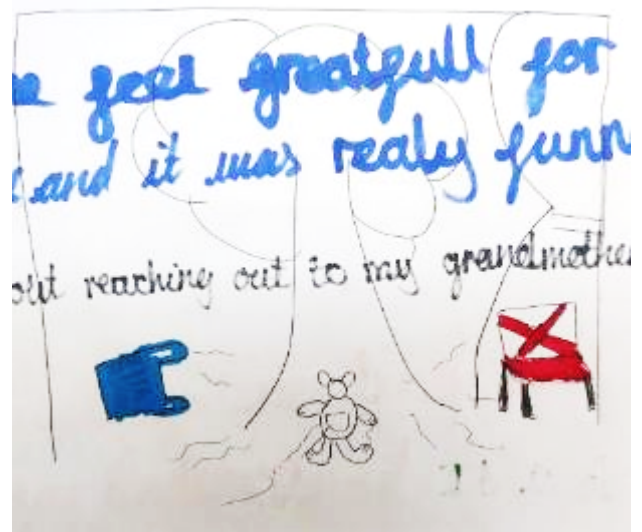 feel greatfull for
and it was realy funn
out reaching out to my grandmother